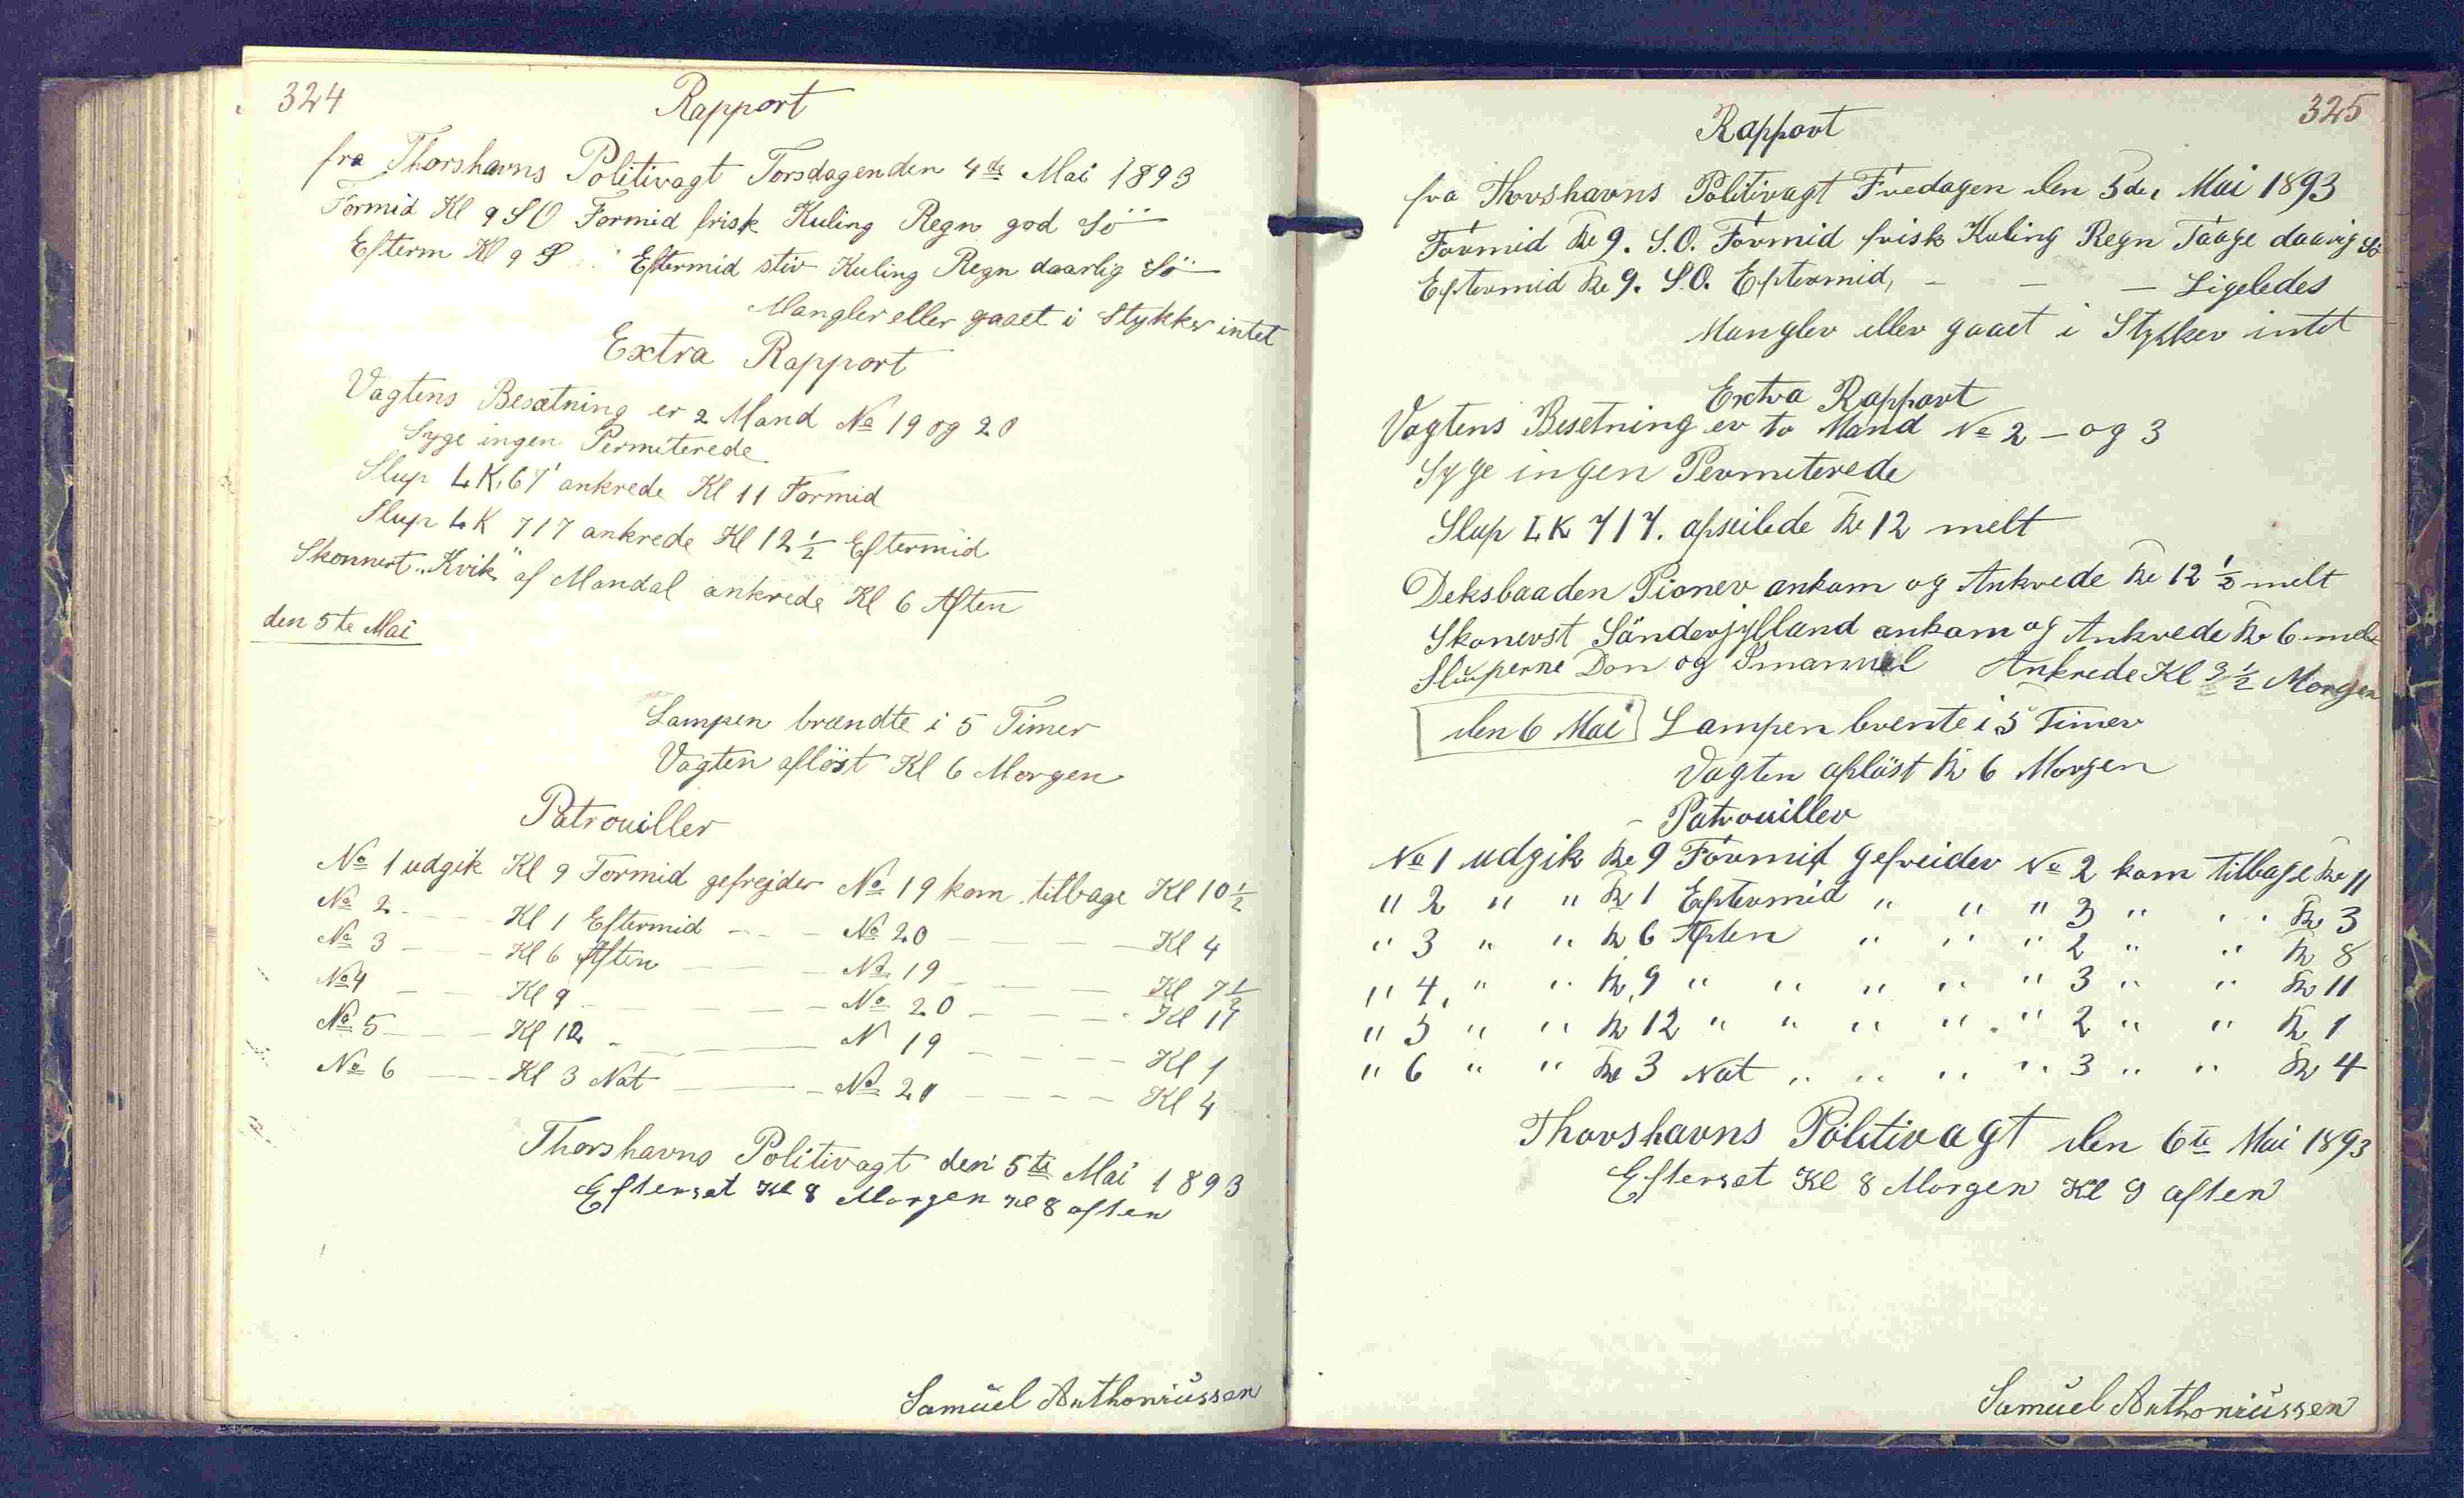 324
Rapport
fra Thorshavns Politivagt Torsdagen den 4de Mai 1893
Formid Kl 9 SO Formid frisk Kuling Regn god Sö
Efterm Kl 9 S Eftermid stiv Kuling Regn daarlig Sö
Mangler eller gaaet i Stykker intet
Extra Rapport
Vagtens Besætning er 2 Mand No 19 og 20
Syge ingen Permiterede
Slup LK 67 ankrede Kl 11 Formid
Slup LK 717 ankrede Kl 12 1/2 Eftermid
Skonnert "Kvik" af Mandal ankrede Kl 6 Aften
den 5te Mai
Lampen brændte i 5 Timer
Vagten aflöst Kl 6 Morgen
Patrouiller
No 1 udgik Kl 9 Formid gefrejder No 19 kom tilbage Kl 10 1/2
No 2 - - - Kl 1 Eftermid - - - No 20 - - - Kl 4
No 3 - - - Kl 6 Aften - - - No 19 - - - Kl 7 1/2
No 4 - - - Kl 9 - - - No 20 - - - Kl 11
No 5 - - - Kl 12 - - - N 19 - - - Kl 1
No 6 - - - Kl 3 Nat - - - No 20 - - - Kl 4
Thorshavns Politivagt den 5te Mai 1893
Efterset Kl 8 Morgen Kl 8 aften
Samüel Anthoniüssen
325
Rapport
fra Thorshavns Politivagt Fredagen den 5de Mai 1893
Formid Kl 9. S.O. Formid frisk Kuling Regn Taage daarig Sö
Eftermid Kl 9. S.O. Eftermid, - - - Ligeledes
Mangler eller gaaet i Stykker intet
Extra Rapport
Vagtens Besetning er to Mand No 2 - og 3
Syge ingen Permiterede
Slup LK 717. afseilede Kl 12 melt
Deksbaaden Pioner ankom og Ankrede Kl 12 1/2 melt
Skonerst Sönderjylland ankom og Ankrede Kl 6 melt
Slüperne Don og Imanuel Ankrede Kl 3 1/2 Morgen
den 6 Mai Lampen brente i 5 Timer
Vagten aflöst Kl 6 Morgen
Patrouiller
No 1 udgik Kl 9 Formid gefreider No 2 kom tilbage Kl 11
" 2 " " Kl 1 Eftermid " " " 3 " " Kl 3
" 3 " " Kl 6 Aften " " " 2 " " Kl 8
" 4 " " Kl 9 " " " " " 3 " " Kl 11
" 5 " " Kl 12 " " " " " 2 " " Kl 1
" 6 " " Kl 3 Nat " " " " 3 " " Kl 4
Thorshavns Politivagt den 6te Mai 1893
Efterset Kl 8 Morgen Kl 9 aften
Samüel Anthoniüssen